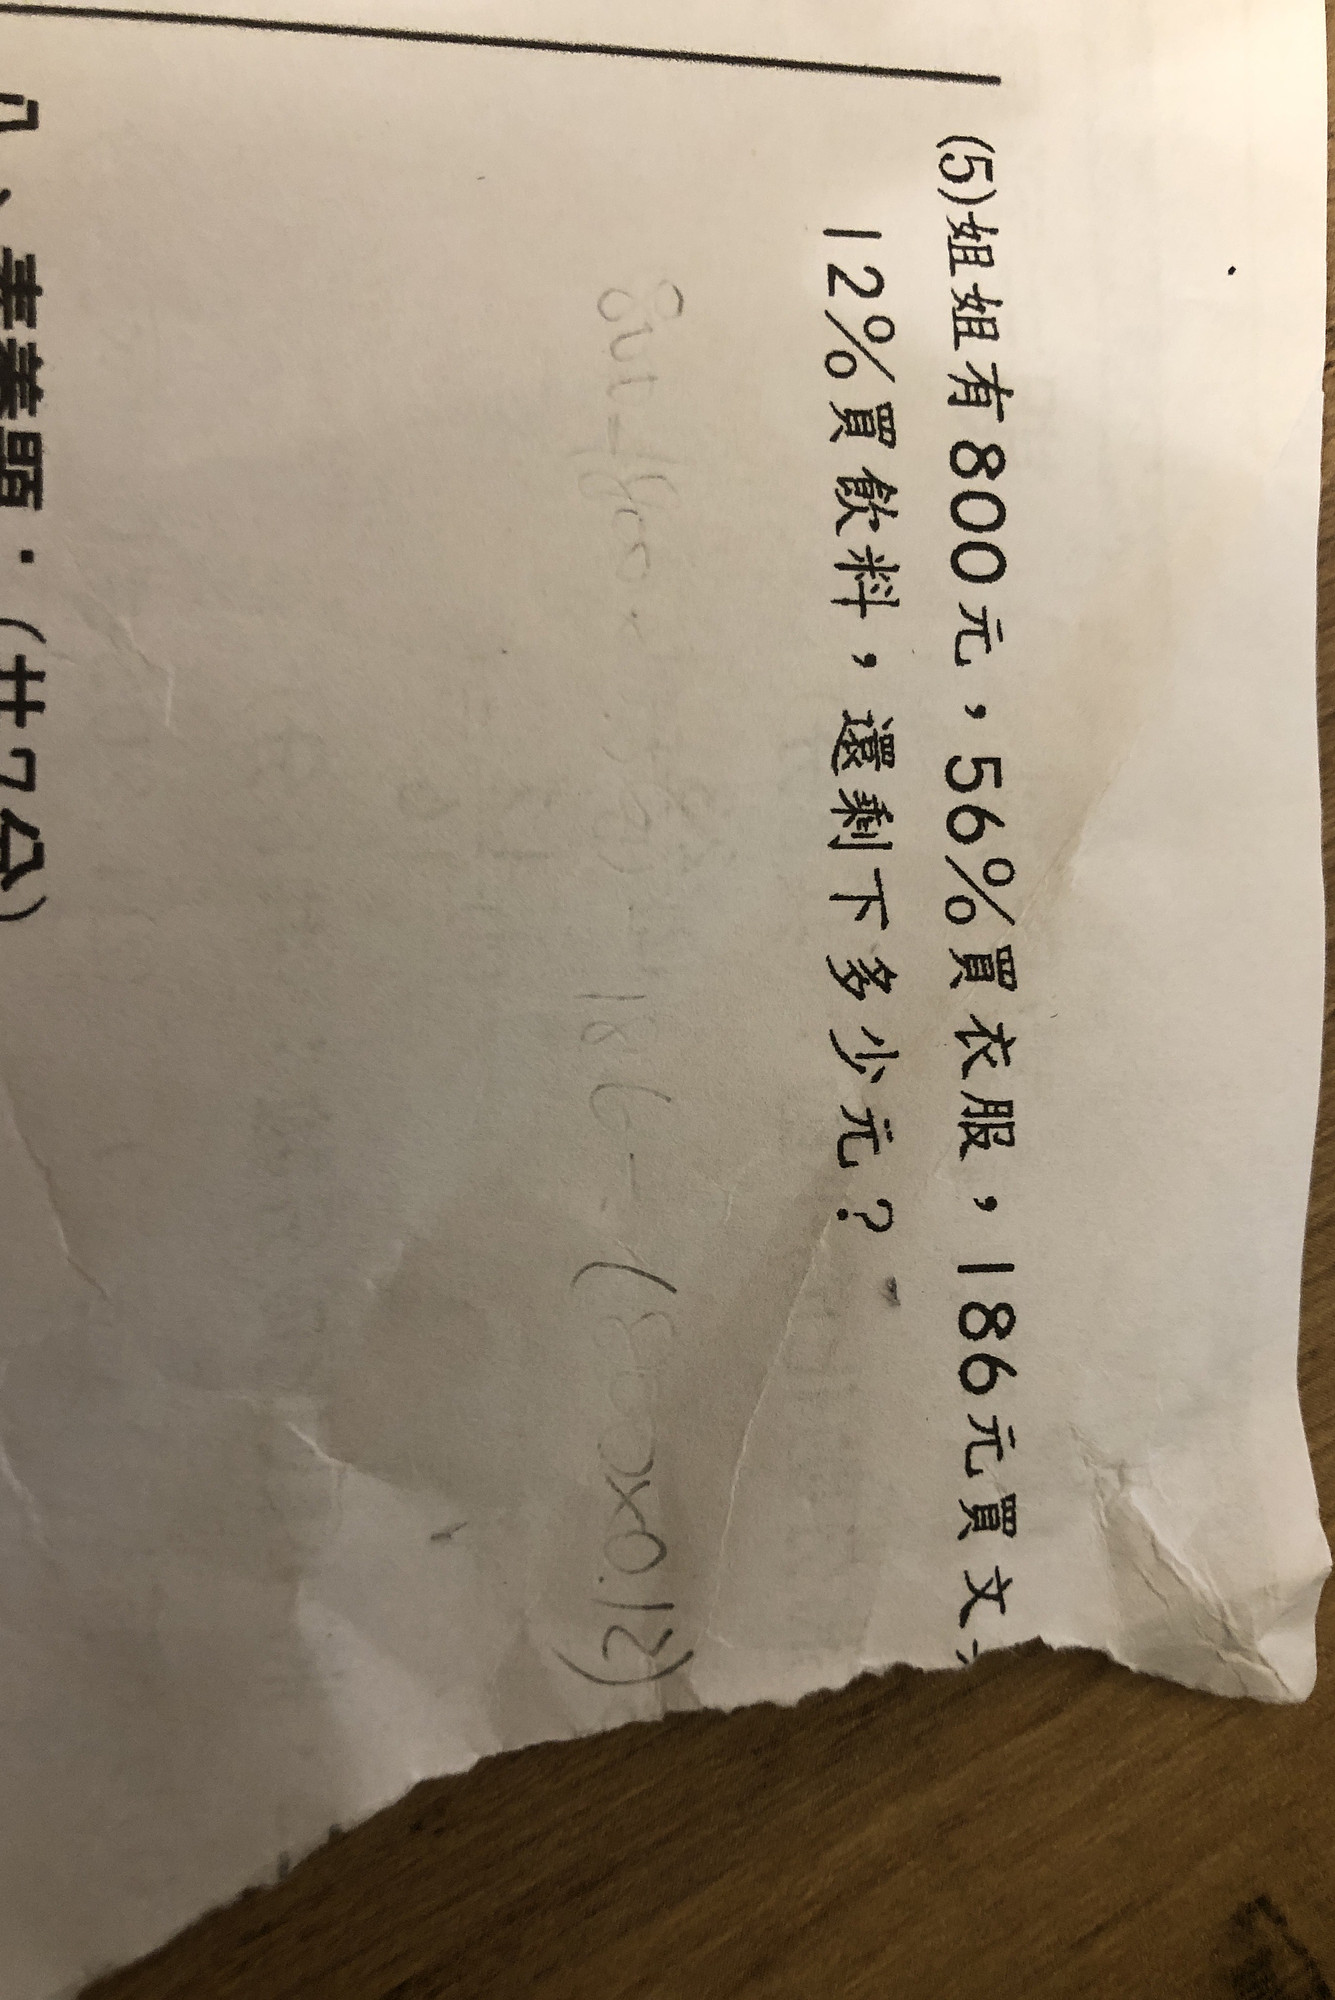 (5)姐姐有800元，56%買衣服，186元買文
12%買飲料，還剩下多少元？
-186-(800×0.12)
八、素養題：(共7分)